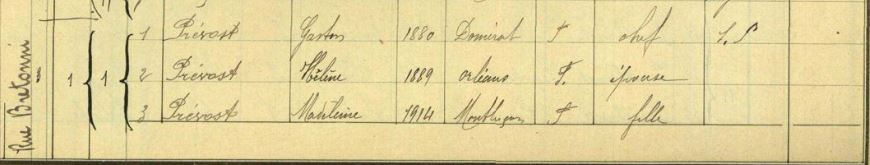 Rue Bretonnie
1 1 1 Prévost Gaston 1880 Domérat F chef S.P
2 Prévost Hélène 1889 Orléans F. épouse
3 Prévost Madeleine 1914 Montluçon F fille